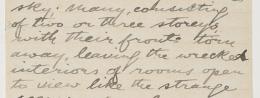 sky; many, consisting
of two or three storeys
with their fronts torn
away, leaving the wrecked
interiors of rooms open
to view like the strange